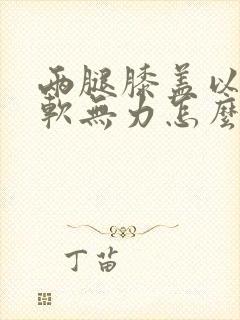 兩腿膝盖以
軟無力怎麼
丁苗